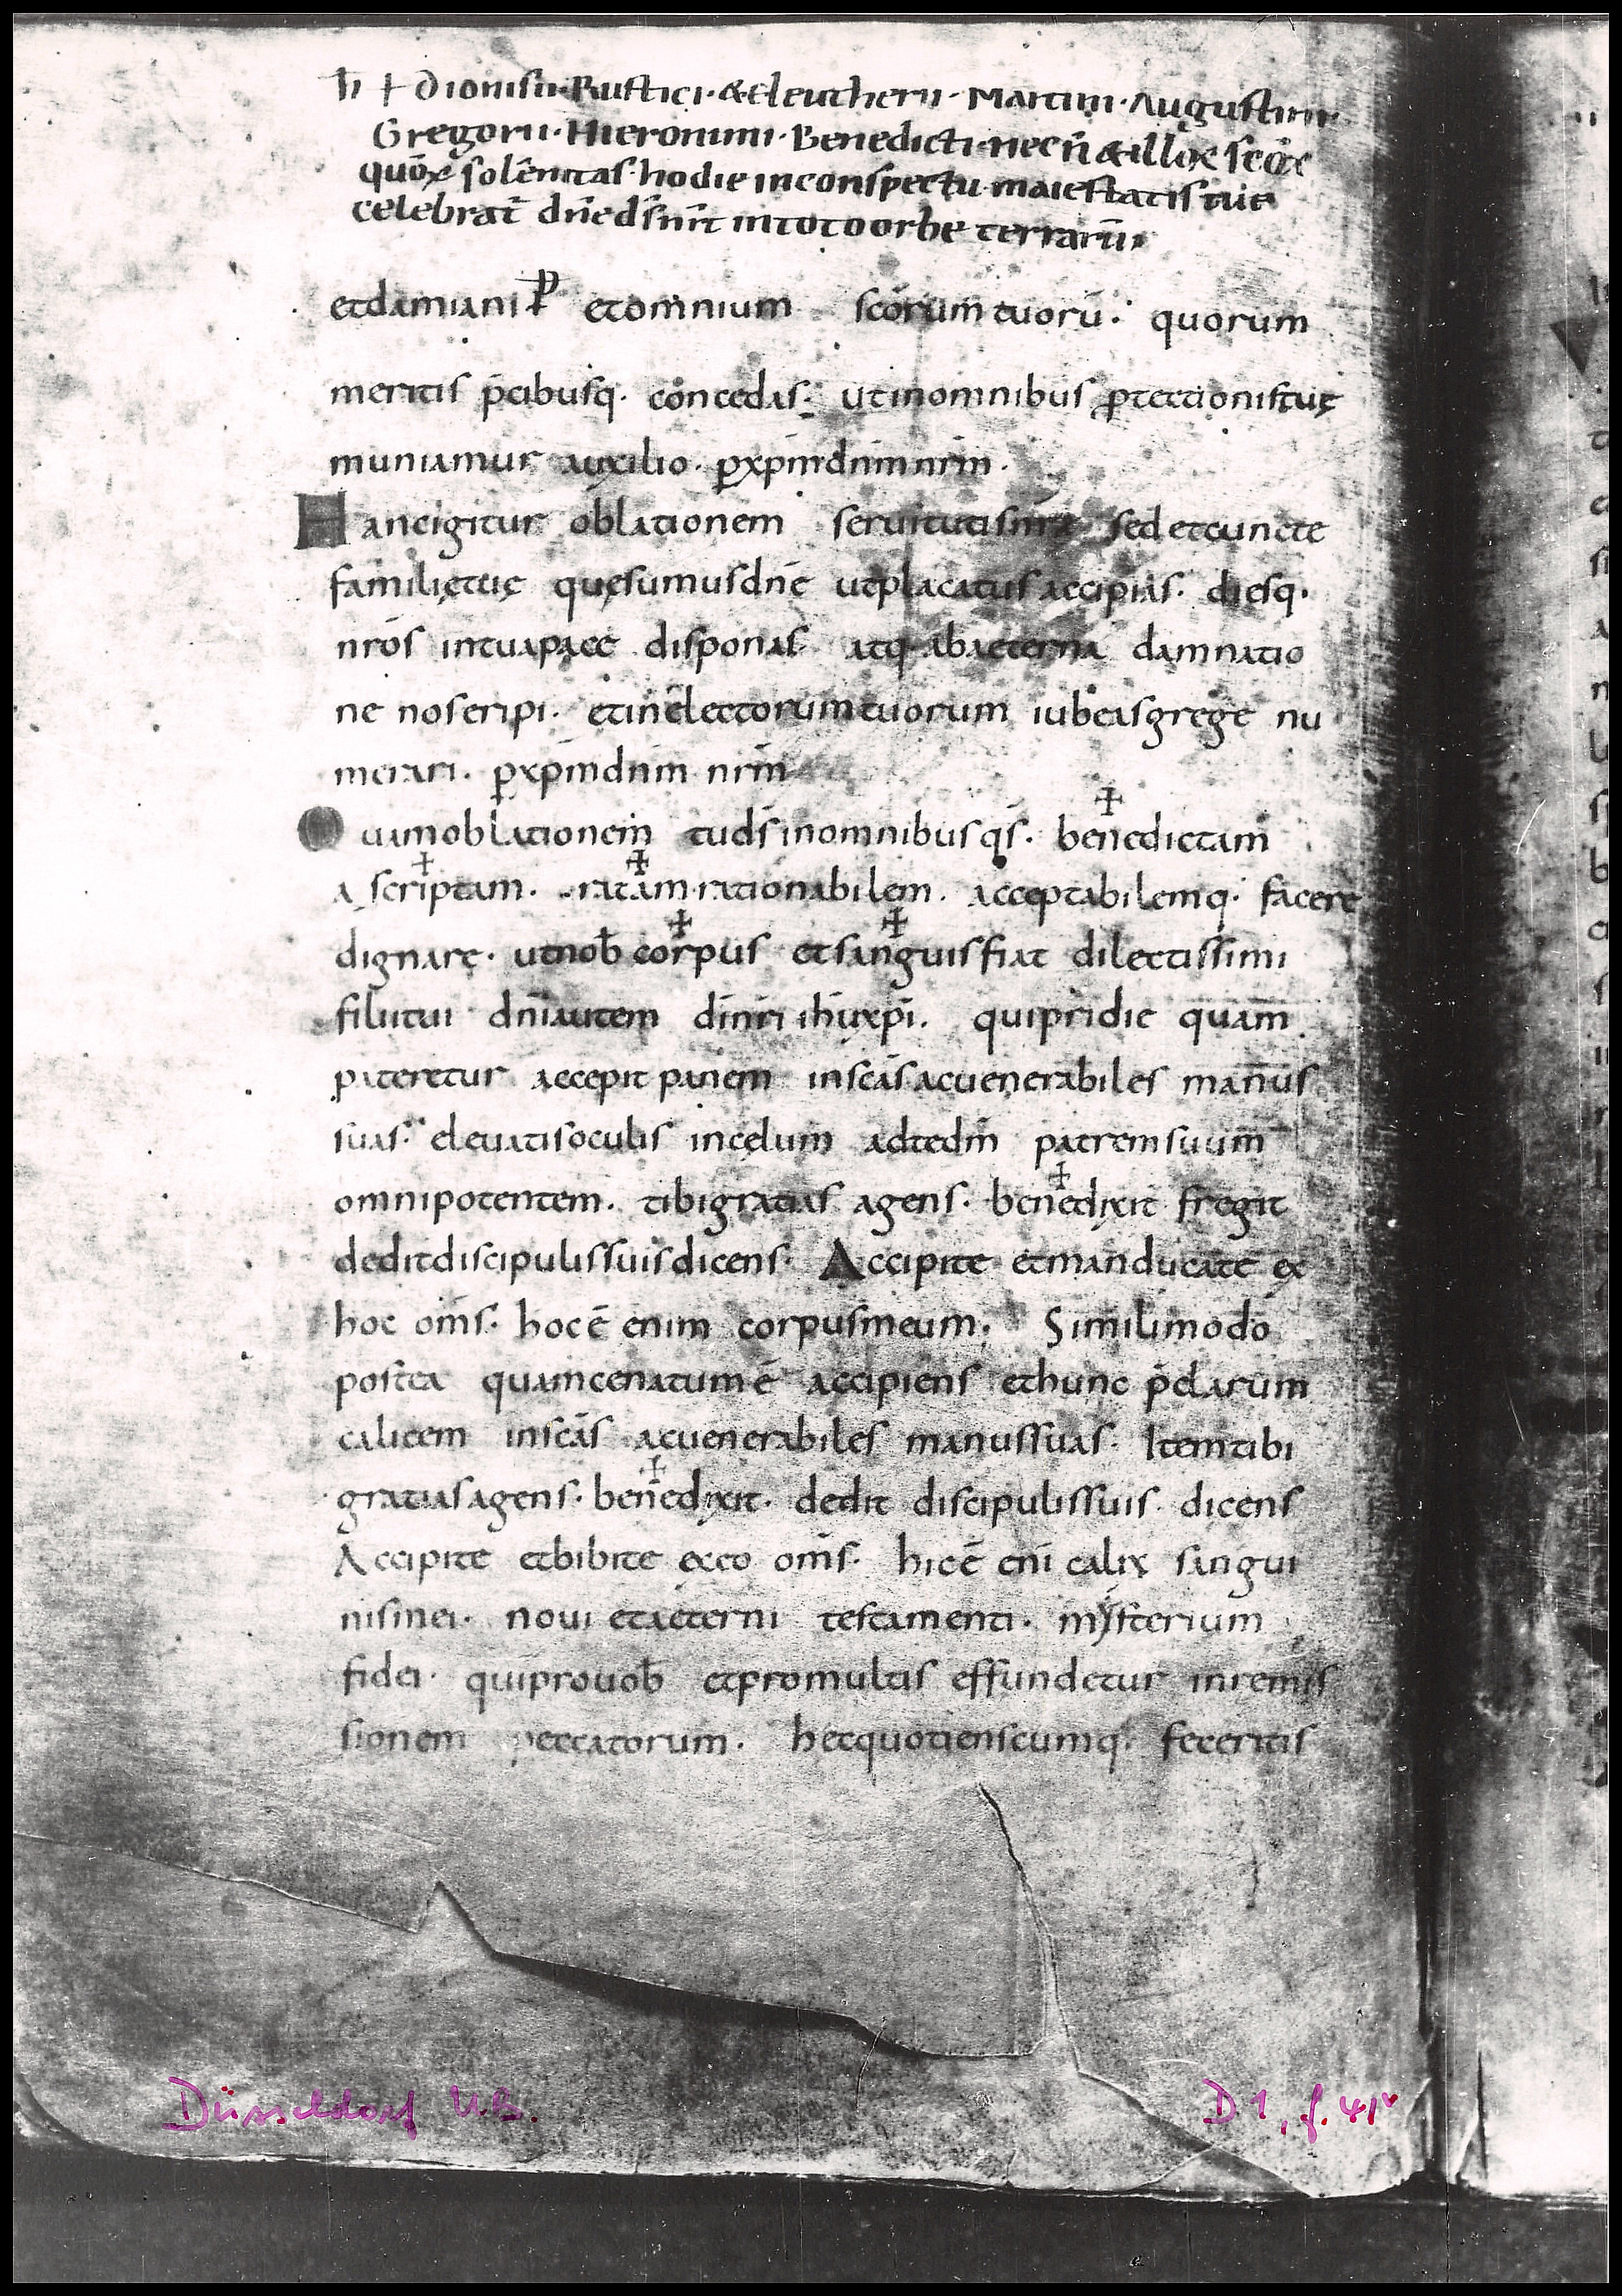 ħ ⼗ Dionisii· Rustici· & Eleutherii· Martini· Augustini·
Gregorii· Hieronimi· Benedicti· nec n̄ & illoꝝ scōꝝ
quōꝝ solēnitas hodie in conspectu maiestatis tuę
celebrat̄ dn̄e ds̄ nr̄ in toto orbe terrarū·
et damiani et omnium scōrum tuorū· quorum
meritis p̄cibusq· concedas· ut in omnibus ꝓtectionis tuę
muniamur auxilio· ꝑ xp̄m dn̄m nr̄m·
Hanc igitur oblationem seruitutis nr̄ę sed et cuncte
familię tuę quęsumus dn̄e ut placatus accipias· diesq·
nr̄os in tua pace disponas atq· ab aeterna damnatio
ne nos eripi· et in electorum tuorum iubeas grege nu
merari· ꝑ xp̄m dn̄m nr̄m
Quam oblationem tu ds̄ in omnibus qs̄· bene✝dictam
a scrip✝tam· ra✝tam· rationabilem· acceptabilemq· facere
dignare· ut nob̄ cor✝pus et san✝guis fiat dilectissimi
filii tui dn̄i autem dī nr̄i ih̄u xp̄i· qui pridie quam
pateretur accepit panem in sc̄as ac uenerabiles manus
suas· eleuatis oculis in cęlum ad te dm̄ patrem suum
omnipotentem· tibi gratias agens· bene✝dixit fregit
dedit discipulis suis dicens· Accipite et manducate ex
hoc om̄s· hoc ē enim corpus meum· Simili modo
postea quam cenatum ē accipiens et hunc p̄clarum
calicem in sc̄as ac uenerabiles manus suas· Item tibi
gratias agens· bene✝dixit· dedit discipulis suis· dicens
Accipite et bibite ex eo om̄s· hic ē eni calix sangui
nis mei· noui et aeterni testamenti· mysterium
fidei· qui pro uob̄ et pro multis effundetur in remis
sionem peccatorum· hec quotienscumq· feceritis
Düsseldorf U.B.
D 1, f. 41v